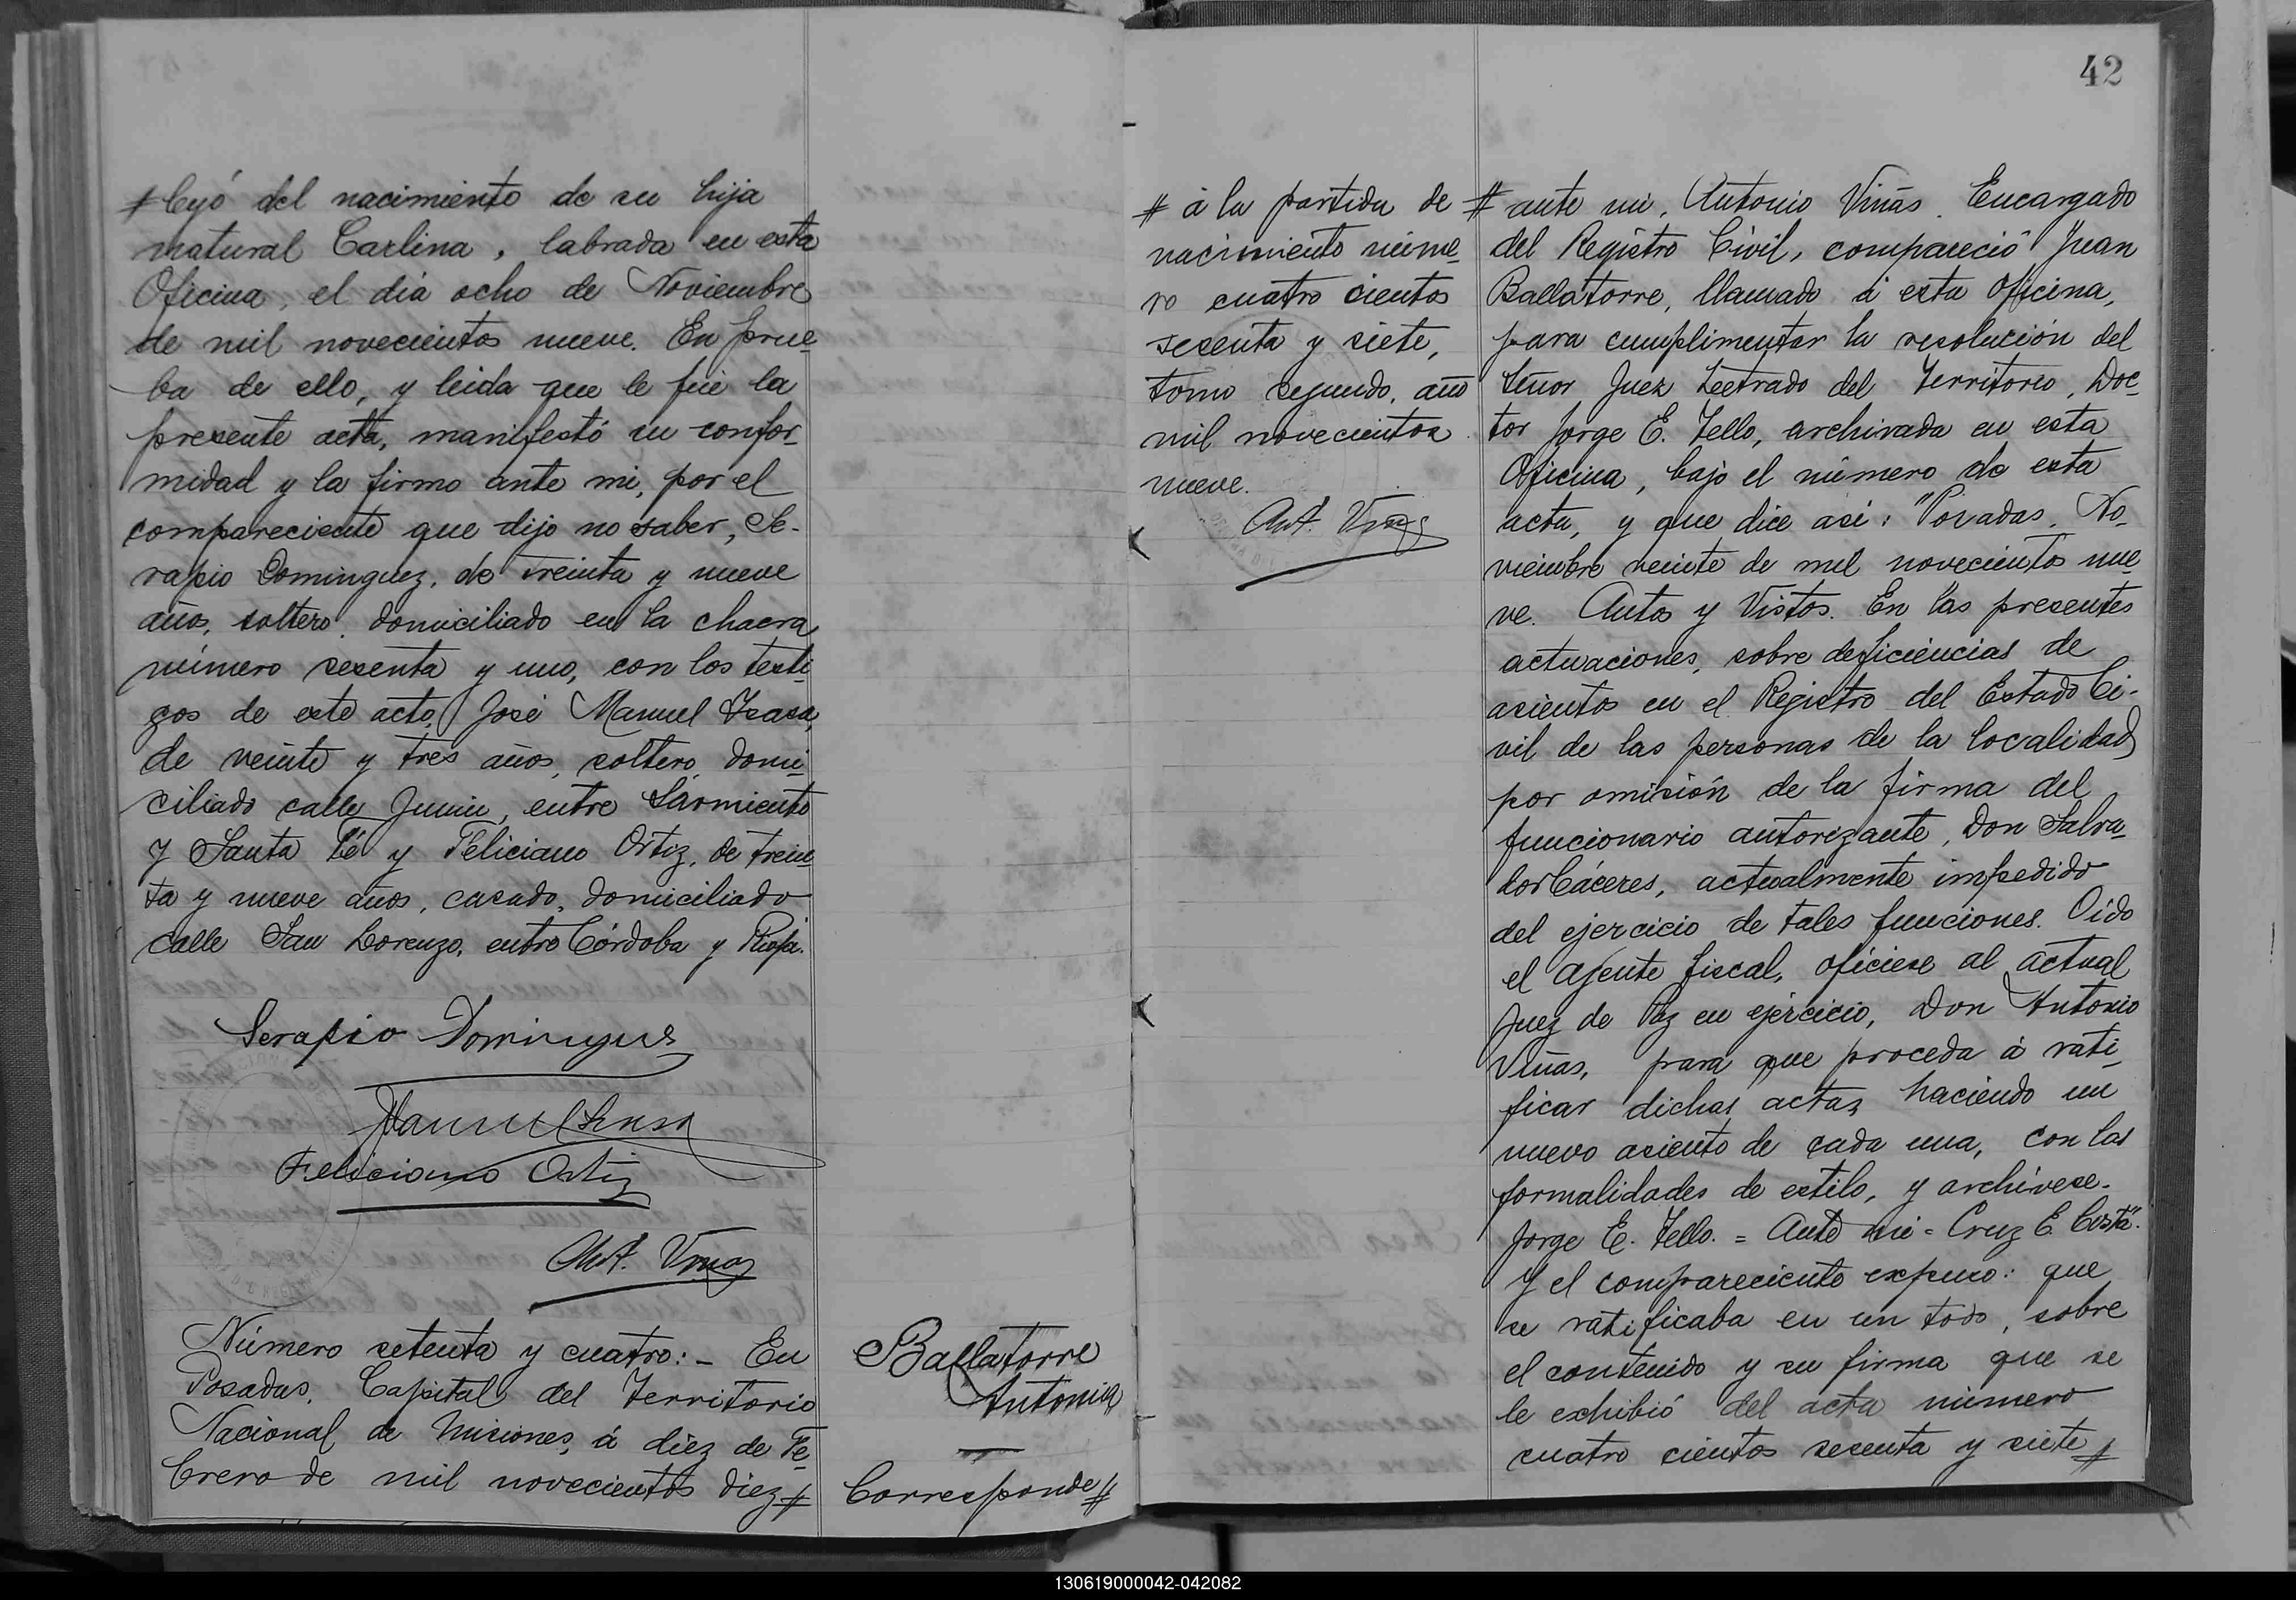 # leyó del nacimiento de su hija
natural Carlina, labrada en esta
Oficina, el dia ocho de Noviembre
de mil novecientos nueve. En prue-
ba de ello, y leida que le fué la
presente acta, manifestó su confor-
midad y la firmo ante mi, por el
compareciente que dijo no saber, Se-
rapio Dominguez, de treinta y nueve
años, soltero, domiciliado en la chacra
número sesenta y uno, con los testi-
gos de este acto, José Manuel Isasa,
de veinte y tres años, soltero, domi-
ciliado calle Junin, entre Sarmiento
y Santa Fé y Feliciano Ortiz, de trein-
ta y nueve años, casado, domiciliado
calle San Lorenzo, entre Córdoba y Rioja.
Serapio Domingues
Feliciano Ortiz
Ant. Viñas
Número setenta y cuatro:- En
Posadas, Capital del Territorio
Nacional de Misiones, á diez de Fe-
brero de mil novecientos diez #
Ballatorre
Antonia
Corresponde #
42
# á la partida de
nacimiento núme-
ro cuatro cientos
sesenta y siete,
tomo segundo, año
mil novecientos
nueve.
Ant. Viñas
# ante mi, Antonio Viñas, Encargado
del Registro Civil, compareció Juan
Ballatorre, llamado á esta Oficina,
para cumplimentar la resolución del
Señor Juez Letrado del Territorio, Doc-
tor Jorge E. Tello, archivada en esta
Oficina, bajo el número de esta
acta, y que dice asi: "Posadas, No-
viembre veinte de mil novecientos nue-
ve. Autos y Vistos. En las presentes
actuaciones, sobre deficiencias de
asientos en el Registro del Estado Ci-
vil de las personas de la localidad
por omisión de la firma del
funcionario autorizante, Don Salva-
dor Cáceres, actualmente impedido
del ejercicio de tales funciones. Oido
el Ajente fiscal, ofíciese al actual
Juez de Paz en ejercicio, Don Antonio
Viñas, para que proceda á rati-
ficar dichas actas haciendo un
nuevo asiento de cada una, con las
formalidades de estilo, y archívese.
Jorge E. Tello. = Ante mi = Cruz E. Costa".
Y el compareciente expuso: que
se ratificaba en un todo, sobre
el contenido y su firma que se
le exhibió del acta número
cuatro cientos sesenta y siete #
130619000042-042082